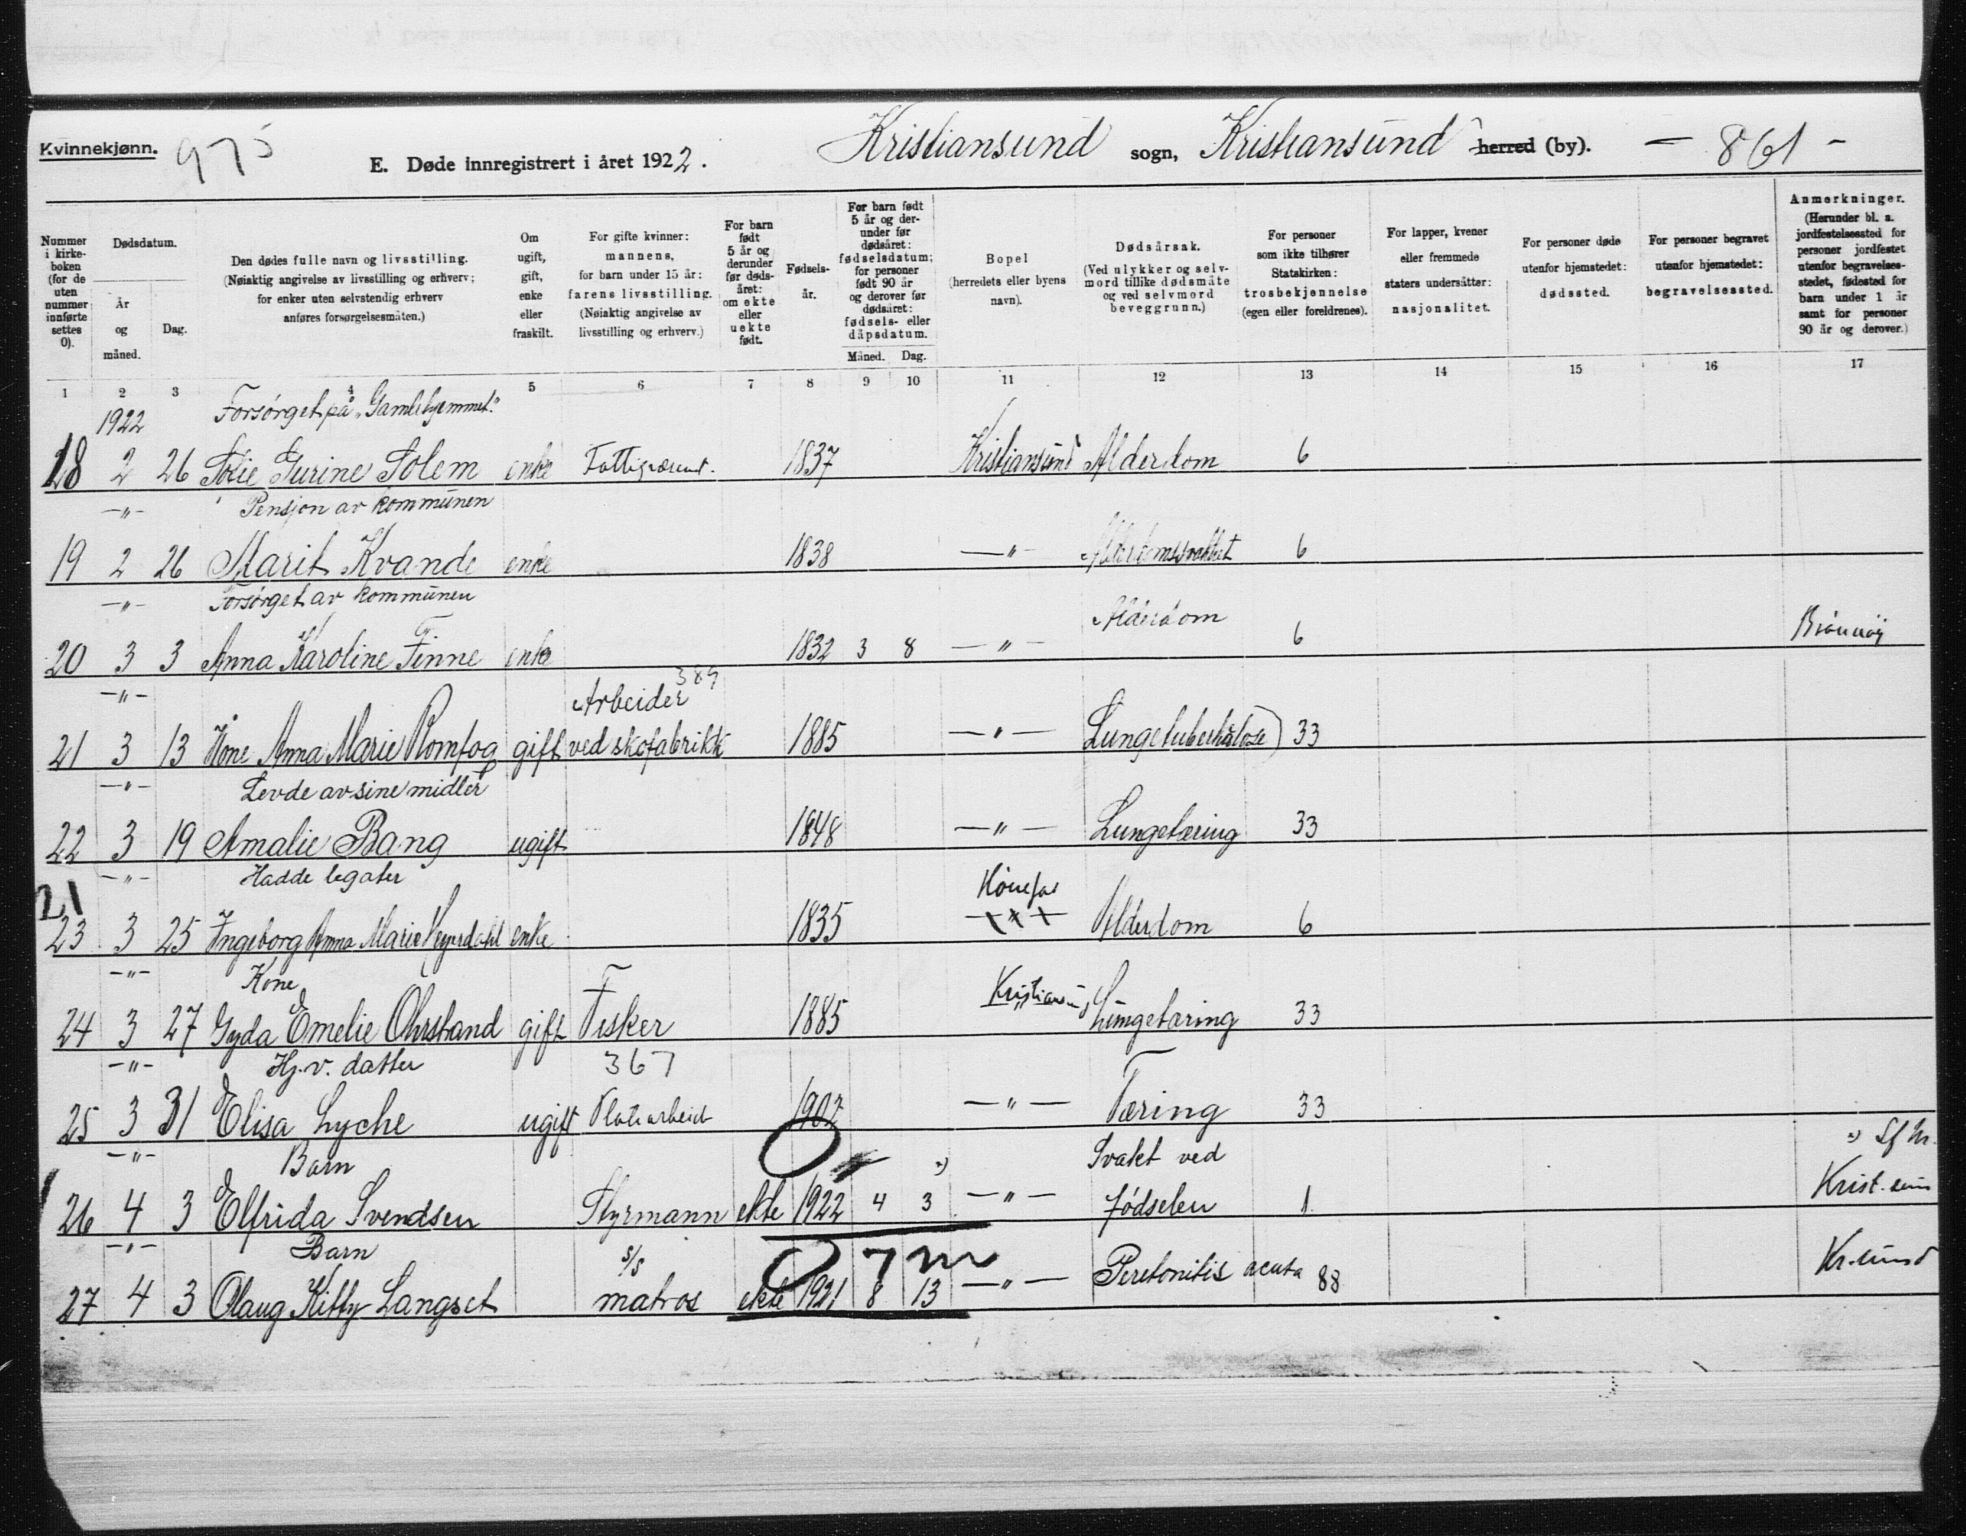 Kvinnekjønn. 975 E. Døde innregistrert i året 1922. Kristiansund sogn, Kristiansund herred (by). — 861 —
Nummer i kirke-boken (for de uten nummer innførte settes 0).
Dødsdatum.
År og måned.
Dag.
Den dødes fulle navn og livsstilling.
(Nøiaktig angivelse av livsstilling og erhverv; for enker uten selvstendig erhverv anføres forsørgelsesmåten.)
Om ugift, gift, enke eller fraskilt.
For gifte kvinner: mannens, for barn under 15 år: farens livsstilling. (Nøiaktig angivelse av livsstilling og erhverv.)
For barn født 5 år og derunder før dødsåret: om ekte eller uekte født.
Fødselsår.
For barn født 5 år og derunder før dødsåret: fødselsdatum; for personer født 90 år og derover før dødsåret: fødsels- eller dåpsdatum.
Måned. Dag.
Bopel (herredets eller byens navn).
Dødsårsak. (Ved ulykker og selvmord tillike dødsmåte og ved selvmord beveggrunn.)
For personer som ikke tilhører Statskirken: trosbekjennelse (egen eller foreldrenes).
For lapper, kvener eller fremmede staters undersåtter: nasjonalitet.
For personer døde utenfor hjemstedet: dødssted.
For personer begravet utenfor hjemstedet: begravelsessted.
Anmerkninger. (Herunder bl. a. jordfestelsessted for personer jordfestet utenfor begravelsesstedet, fødested for barn under 1 år samt for personer 90 år og derover.)
1 2 3 4 5 6 7 8 9 10 11 12 13 14 15 16 17
1922 Forsørget på "Gamlehjemmet."
18 2 26 Gurine Solem enke 1837 Kristiansund Alderdom 6
—"— Pensjon av kommunen
19 2 26 Marit Kvande enke 1838 —"— Alderdomssvakhet 6
—"— Forsørget av kommunen
20 3 3 Anna Karoline Finne enke 1832 3 8 —"— Alderdom 6 Brønnøy
—"— Arbeider 389
21 3 13 Kone Anna Marie Romfog gift ved skofabrikk 1885 —"— Lungetuberkulose) 33
—"— Levde av sine midler
22 3 19 Amalie Bang ugift 1848 —"— Lungetæring 33
—"— Hadde legater
21
23 3 25 Ingeborg Anna Marie enke 1835 Alderdom 6
—"— Kone
24 3 27 Gyda Emelie Ohrstrand gift Fisker 1885 Lungetæring 33
—"— Hj.v. datter 367
25 3 31 Elisa Lyche ugift 1907 —"— Tæring 33
—"— Barn Svakt ved
26 4 3 Elfrida Svendsen Styrmann ekte 1922 4 3 —"— fødselen 1 Krist.sund
—"— Barn s/s 0 7 m
27 4 3 Olaug Kitty Langset matros ekte 1921 8 13 —"— Peretonitis acuta 88 Kr.sund